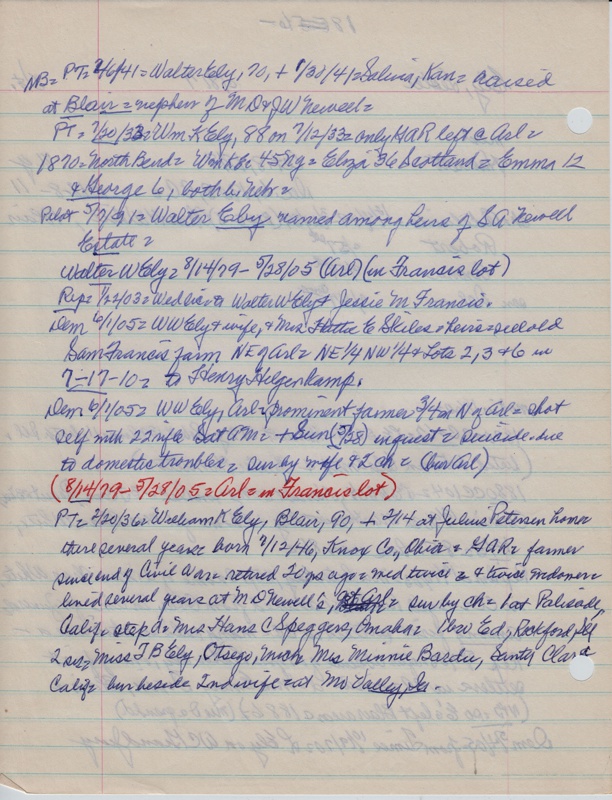 NB= PT= 2/6/41= Walter Ely, 70, + 1/30/41= Salina, Kan= raised
at Blair= nephew of M D & J W Newell=
PT= 7/20/33= Wm K Ely, 88 on 7/12/33= only GAR left c Arl=
1870= North Bend= Wm K 45 NY= Eliza 36 Scotland= Emma 12
& George 6, both b Nebr=
Pilot 5/7/91= Walter Eby named among heirs of S A Newell
Estate=
Walter W Ely= 8/14/79- 5/28/05 (Arl) (in Francis lot)
Rep= 1/22/03= Wed lic= Walter W Ely & Jessie M Francis.
Dem 6/1/05= W W Ely & wife, & Mrs Hattie E Skiles= heirs= sell old
Sam Francis farm NE of Arl= NE 1/4 NW 1/4 & Lots 2, 3 & 6 in
7-17-10= to Henry Hilgenkamp.
Dem 6/1/05= W W Ely, Arl= prominent farmer 3/4 m N of Arl= shot
self with 22 rifle Sat AM= + Sun (5/28) inquest= suicide due
to domestic troubles= sur by wife & 2 ch= (bur Arl)
(8/14/79- 5/28/05= Arl= in Francis lot)
PT= 2/20/36= William K Ely, Blair, 90, + 2/14 at Julius Petersen home
there several years= born 7/12/46, Knox Co, Ohio= GAR= farmer
since end of Civil War= retired 20 yrs ago= md twice= & twice widower=
lived several years at M D Newell's, at Arl= sur by ch= 1 at Palisade,
Calif= step d= Mrs Hans C Speggers, Omaha= 1 bro Ed, Rockford, Ill
2 sis= Miss T B Ely, Otsego, Mich Mrs Minnie Bardu, Santa Clara
Calif= bur beside 2nd wife= at Mo Valley, Ia.